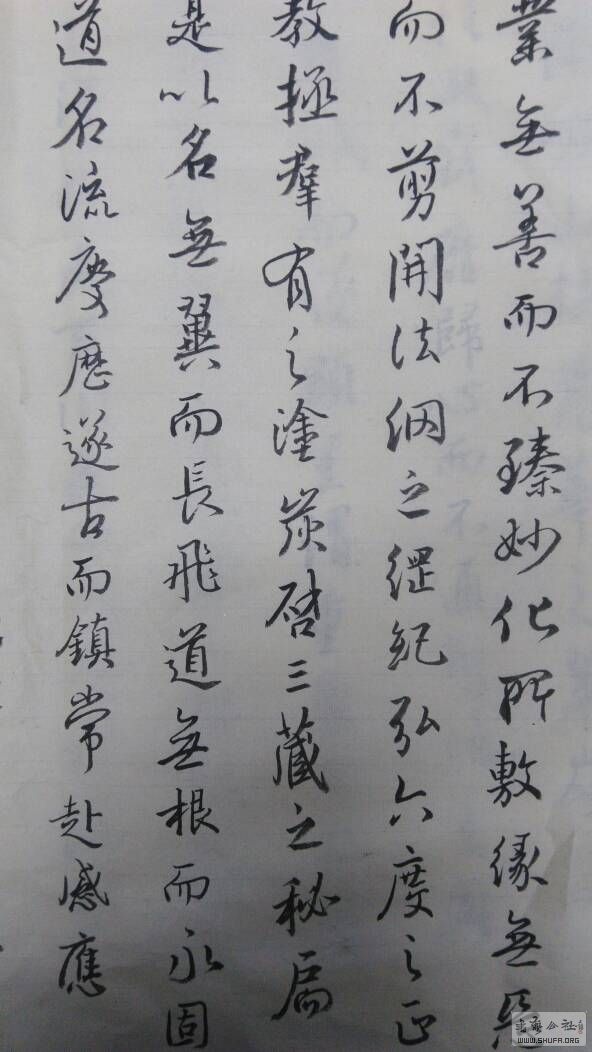 業無善而不臻妙化所敷緣無惡
而不剪開法網之綱紀弘六度之正
教拯羣有之塗炭啓三藏之秘扃
是以名無翼而長飛道無根而永固
道名流慶歷遂古而鎮常赴感應
WWW.SHUFA.ORG